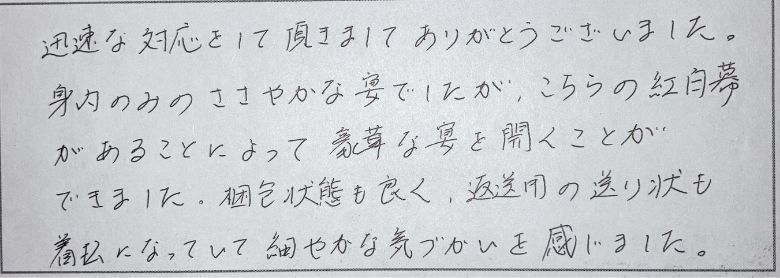 迅速な対応をして頂きましてありがとうございました。
身内のみのささやかな宴でしたが、こちらの紅白幕
があることによって豪華な宴を開くことが
できました。梱包状態も良く、返送用の送り状も
着払になっていて細やかな気づかいを感じました。